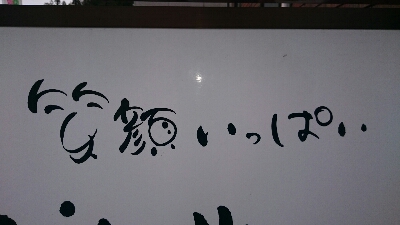 笑顔いっぱい